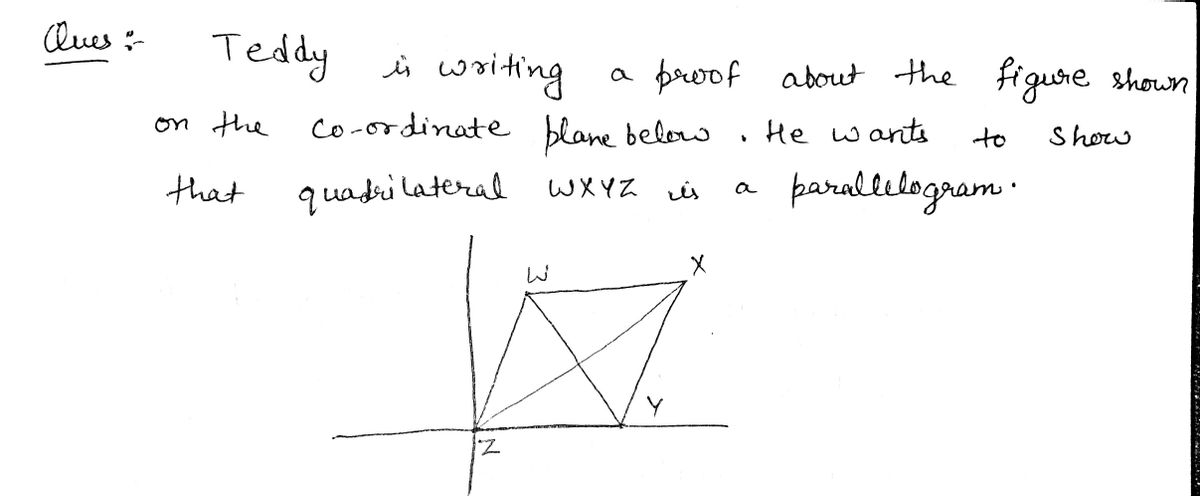 Ques :- Teddy is writing a proof about the figure shown
on the co-ordinate plane below. He wants to show
that quadrilateral WXYZ is a parallelogram.
W
X
Y
Z